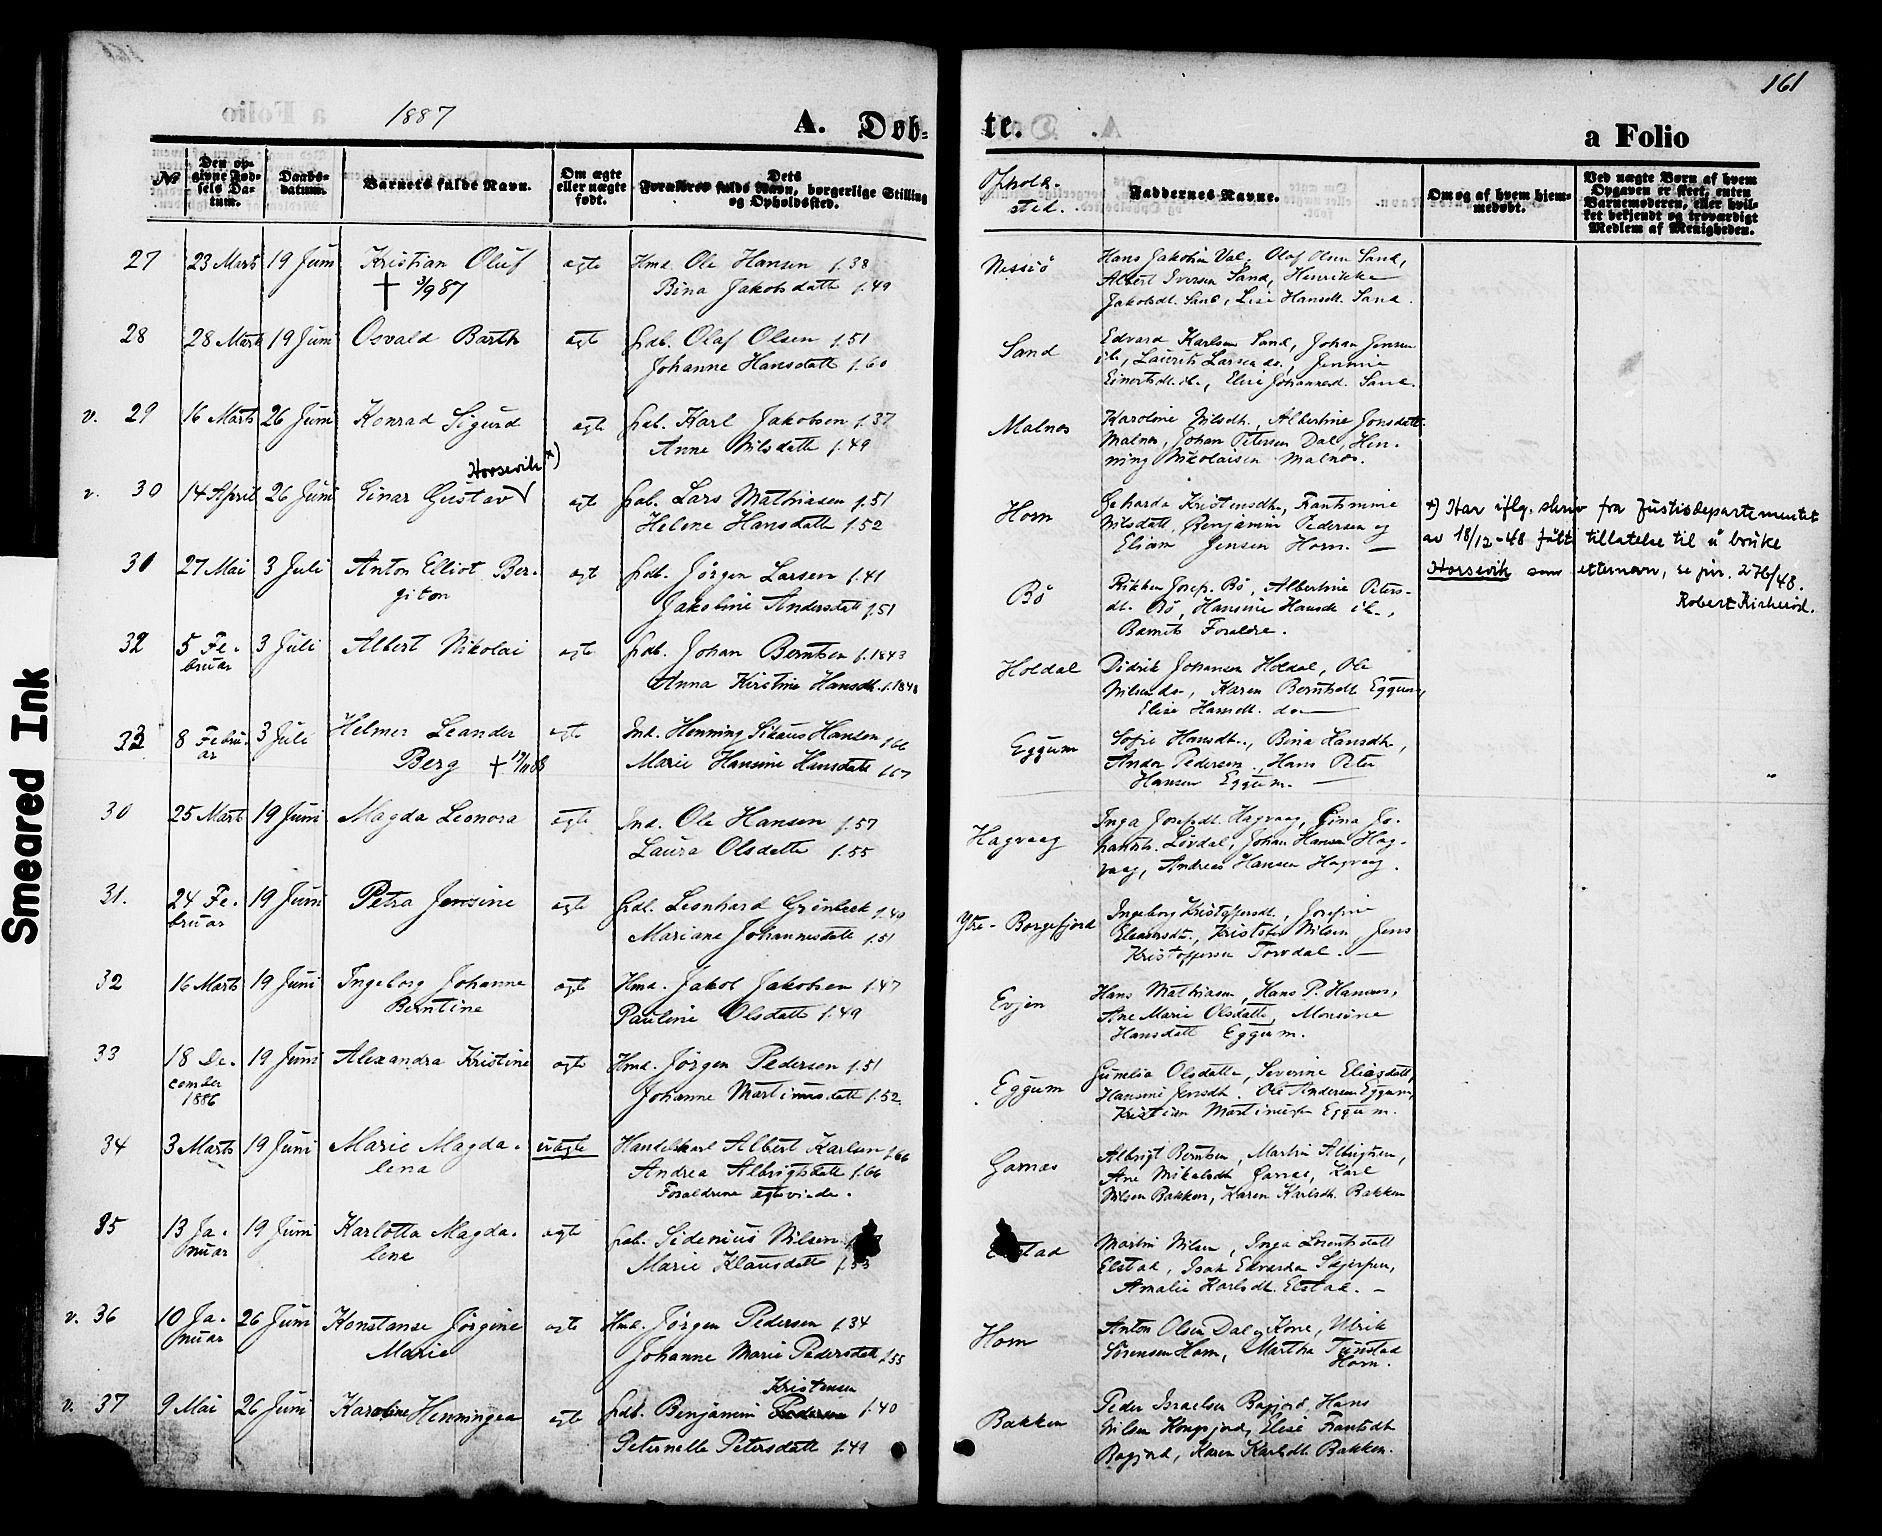 161
1887
A. Døb-
te.
a Folio
Smeared Ink
№
Den op-
givne Fød-
sels Da-
tum.
Daabs-
datum.
Barnets fulde Navn.
Om ægte
eller uægte
født.
Dets
Forældres fulde Navn, borgerlige Stilling
og Opholdssted.
Ophold-
sted.
Faddernes Navne.
Om og af hvem hjem-
medøbt.
Ved uægte Børn af hvem
Opgaven er skeet, enten
Barnemoderen, eller hvil-
ket bekjendt og troværdigt
Medlem af Menigheden.
27 23 Marts 19 Juni Kristian Oluf ægte Hmd. Ole Hansen f.38
† 3/9 87 Bina Jakobsdatt f.49
Hans Jakobsen Val, Olaf Olsen Sand,
Albert Iversen Sand, Henrikke
Jakobsdt. Sand, Lise Hansdt. Sand.
28 28 Marts 19 Juni Osvald Barth ægte frdb. Olaf Olsen f.51
Johanne Hansdatt f.60
Sand
Edvard Karlsen Sand, Johan Jensen
ib., Laurits Larsen do., Jensine
Einertsdt. ib., Elise Johannesd. Sand.
v. 29 16 Marts 26 Juni Konrad Sigurd ægte frdb. Karl Jakobsen f.37
Anne Nilsdatt f.49
Malnes
Karoline Nilsdt., Albertine Jonsdatt
Malnes, Johan Petersen Dal, Hen-
ning Nikolaisen Malnes.
Horsevik *)
v. 30 14 April 26 Juni Einar Gustav ægte frdb. Lars Mathiasen f.51
Helene Hansdatt f.52
Horn
Geharda Kristensdt.,
Nilsdatt, Benjamin Pedersen og
Eliam Jensen Horn. —
*) Har iflg. skriv fra Justisdepartementet
av 18/12-48 fått tillatelse til å bruke
Horsevik som etternavn, se jnr. 276/48.
Robert Kirkerød.
31 27 Mai 3 Juli Anton Elliot Ber- ægt frdb. Jörgen Larsen f.41
giton Jakobine Andersdatt f.51
Bö
Rikken Josep. Bö, Albertine Peters-
dt. Bö, Hansine Hansdt ib.,
Barnets Forældre.
32 5 Fe- 3 Juli Albert Nikolai ægte frdb. Johan Berntsen f.1843
bruar Anna Kirstine Hansdt. f.1848
Holdal
Didrik Johansen Holdal, Ole
Nilsen do, Karen Berntsdt Eggum,
Elise Hansdt. do —
33 8 Febru- 3 Juli Helmer Leander ægte Ind. Henning Hansen f.66
ar Berg † Marie Hansine Hansdatt f.67
Eggum
Sofie Hansdt., Bina Hansdt.,
Andor Pedersen, Hans Peter
Hansen Eggum. —
30 25 Marts 19 Juni Magda Leonora ægte Ind. Ole Hansen f.57
Laura Olsdatt f.55
Hagvaag
Inga Josefsdt. Hagvaag, Gina Jo-
hansdt. Lövdal, Johan Hansen Hag-
vaag, Andreas Hansen Hagvaag.
31. 24 Fe- 19 Juni Petra Jensine ægte frdb. Leonhard Grönbeck f.49
bruar Mariane Johannesdatt f.51
Ytre-Borgefjord
Ingeborg Kristoffersdt., Josefine
Eliasesdt., Kristofer Nilsen, Jens
Kristoffersen Torvdal. —
32 16 Marts 19 Juni Ingeborg Johanne ægte Hmd. Jakob Jakobsen f.47
Berntine Pauline Olsdatt f.49
Evjen
Hans Mathiasen, Hans P. Hansen,
Ane Marie Olsdatt, Monsine
Hansdatt Eggum.
33 18 De- 19 Juni Alexandra Kristine ægte Hmd. Jörgen Pedersen f.51
cember Johanne Martinusdatt f.52.
1886
Eggum
Gunelia Olsdatt, Severine Eliasdatt,
Hansine Jensdt. Ole Andersen Eggum,
Kristian Martinusen Eggum.
34 3 Marts 19 Juni Marie Magda- uægte Handelskarl Albert Karlsen f.66
lena Andrea Albrigtsdatt f.66
Forældrene egteviede.
Garnæs
Albrigt Berntsen, Martin Albrigtsen,
Ane Mikalsdt Garnæs, Karl
Nilsen Bakken, Karen Karlsdt. Bakken
35 13 Ja- 19 Juni Karlotta Magda- ægte frdb. Sidenius Nilsen
nuar lena Marie Klausdatt f.53
Martin Nilsen, Inga Lorentsdatt
Elstad, Isak Edvardsen Skjerpen,
Amalie Karlsdt. Elstad. —
v. 36 10 Ja- 26 Juni Konstanse Jörgine ægte Hmd. Jörgen Pedersen f.34
nuar Marie Johanne Marie Pedersdatt f.55
Horn
Anton Olsen Dal og Kone, Ulrik
Sörensen Horn, Martha Tunstad
Horn.
v. 37 9 Mai 26 Juni Karoline Henningea ægte frdb. Benjamin Pedersen Kristensen f.40
Peternelle Petersdatt f.49
Bakken
Peder Israelsen Bøgjord, Hans
Nilsen Kongsjord, Elise Frantsdt
Bøgjord, Karen Karlsdt. Bakken.